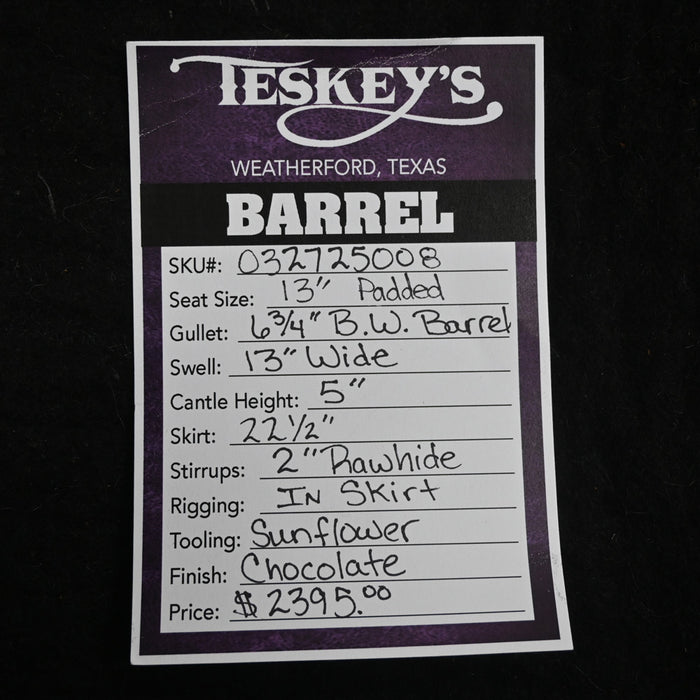 TESKEY'S
WEATHERFORD, TEXAS
BARREL
SKU#: 032725008
Seat Size: 13" Padded
Gullet: 6 3/4" B.W. Barrel
Swell: 13" Wide
Cantle Height: 5"
Skirt: 22 1/2"
Stirrups: 2" Rawhide
Rigging: IN Skirt
Tooling: Sunflower
Finish: Chocolate
Price: $2395.00